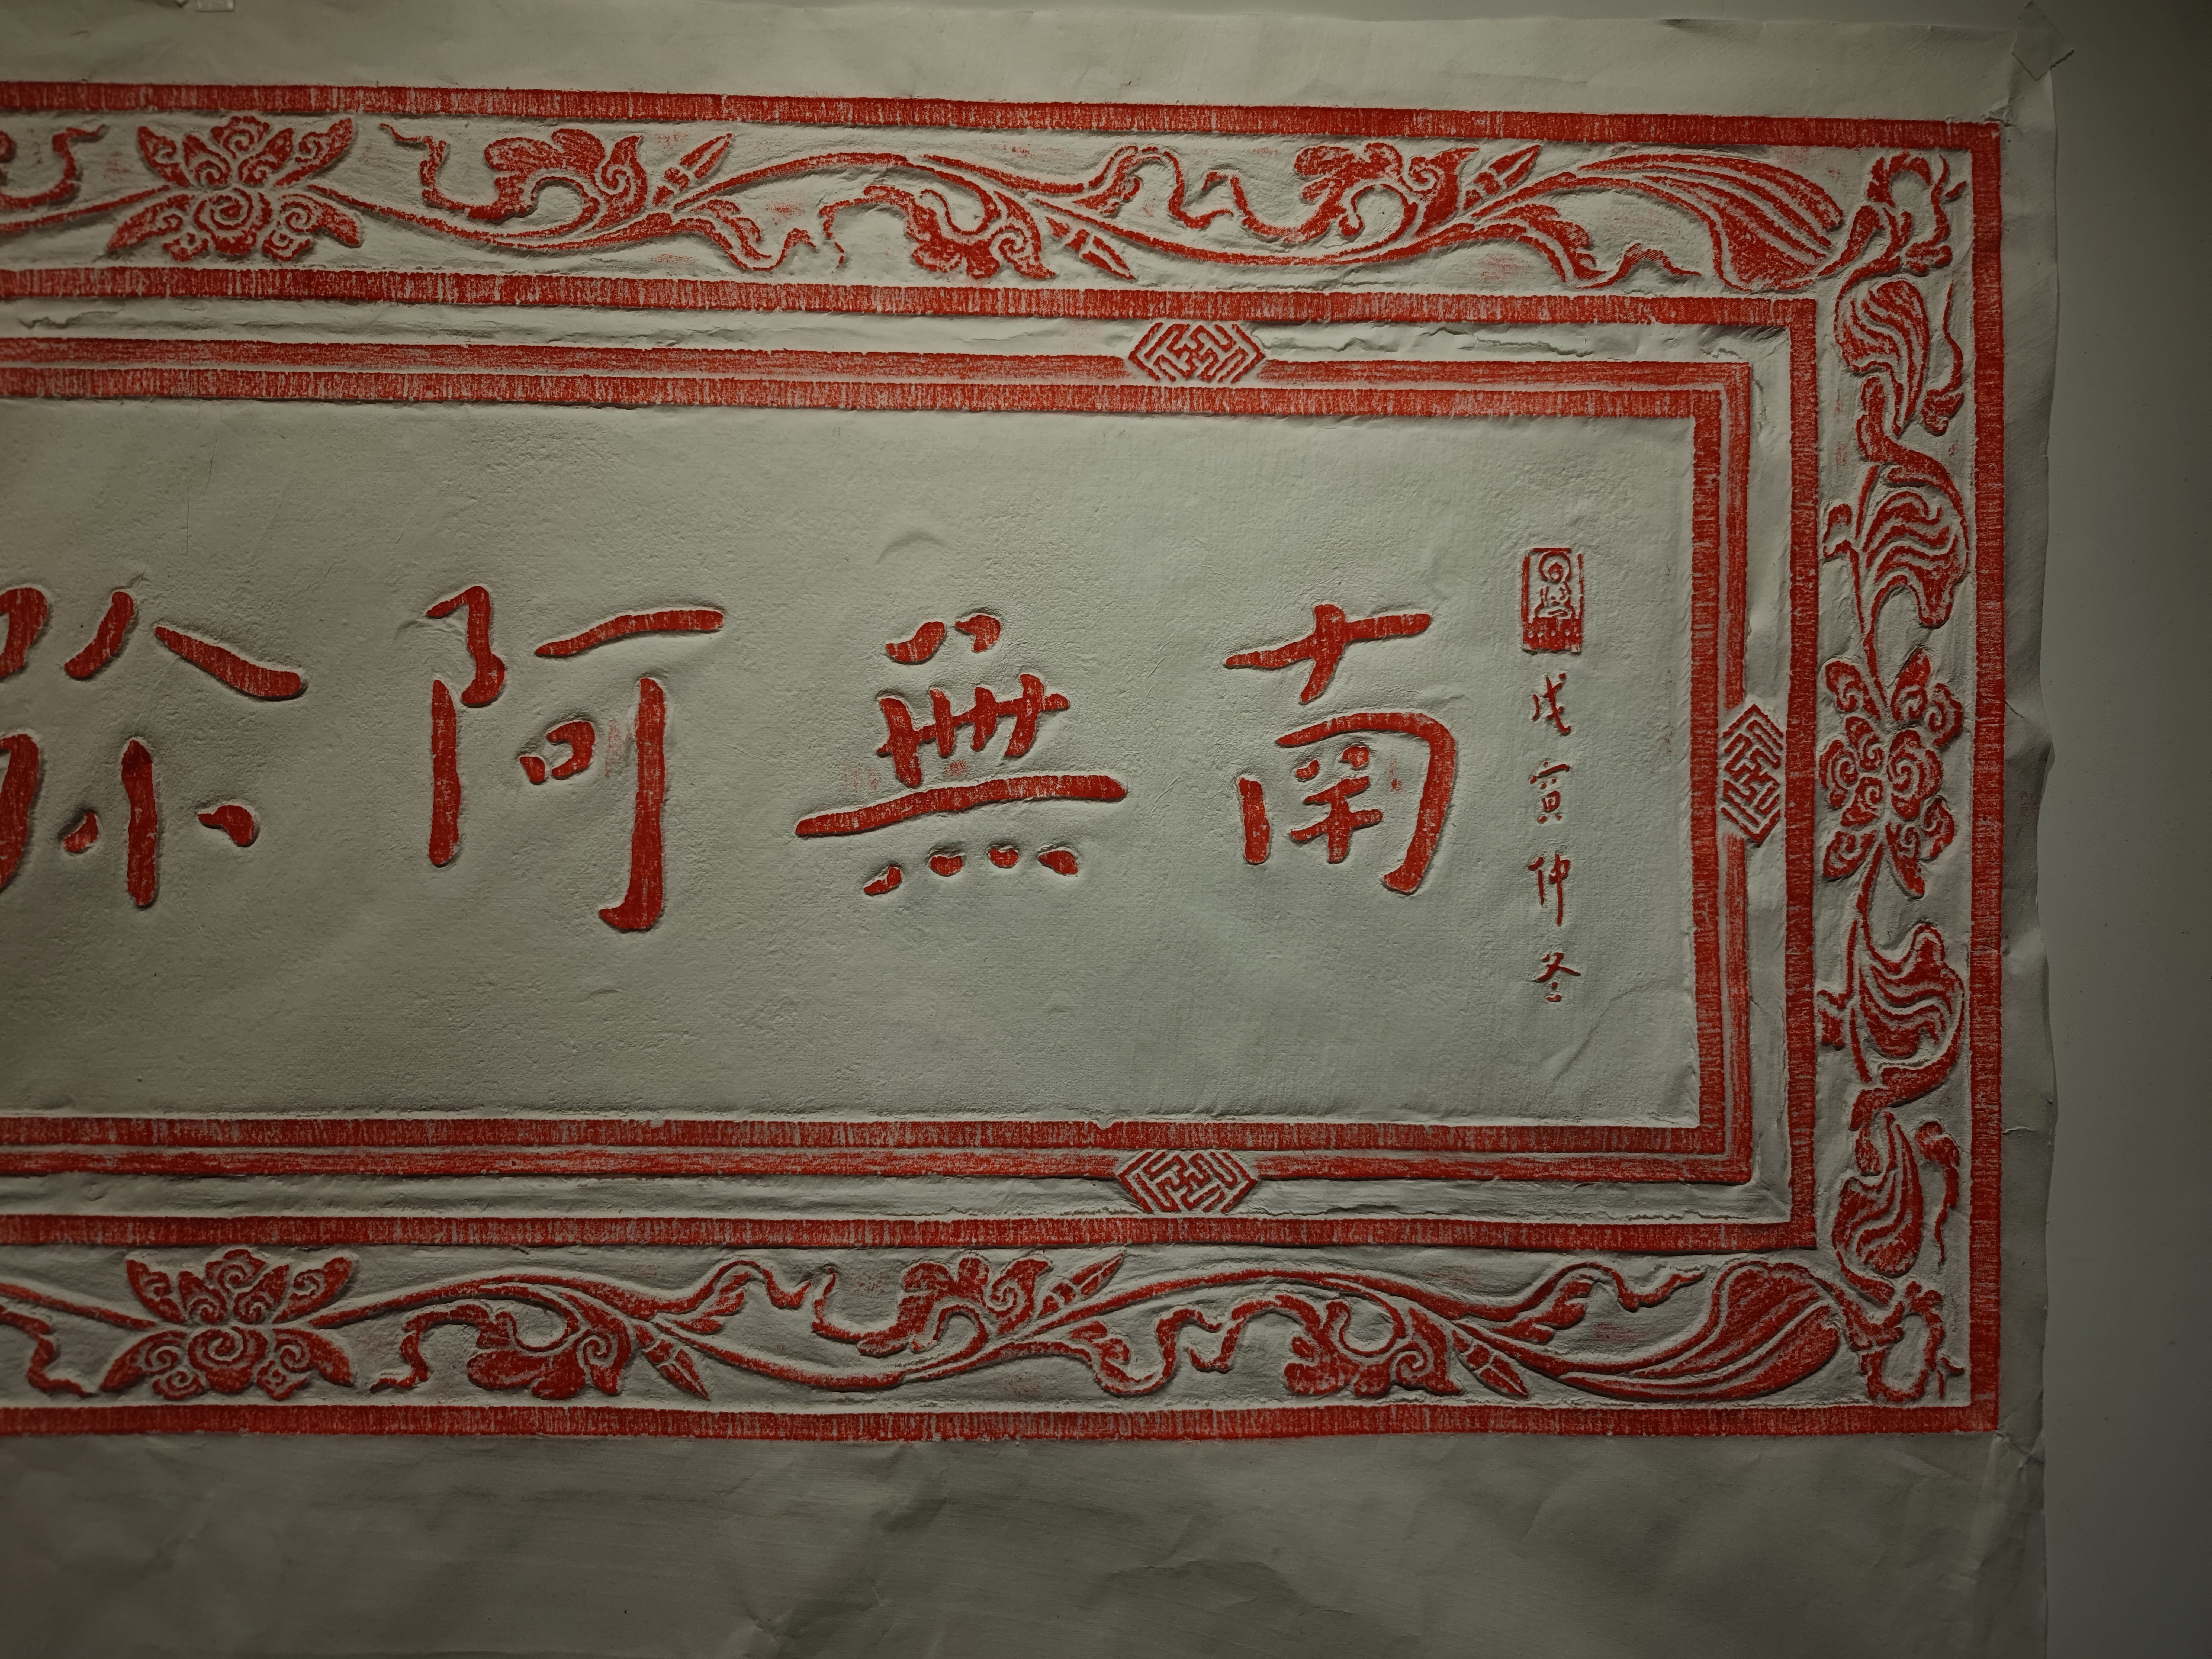 戊寅仲冬
南無阿弥